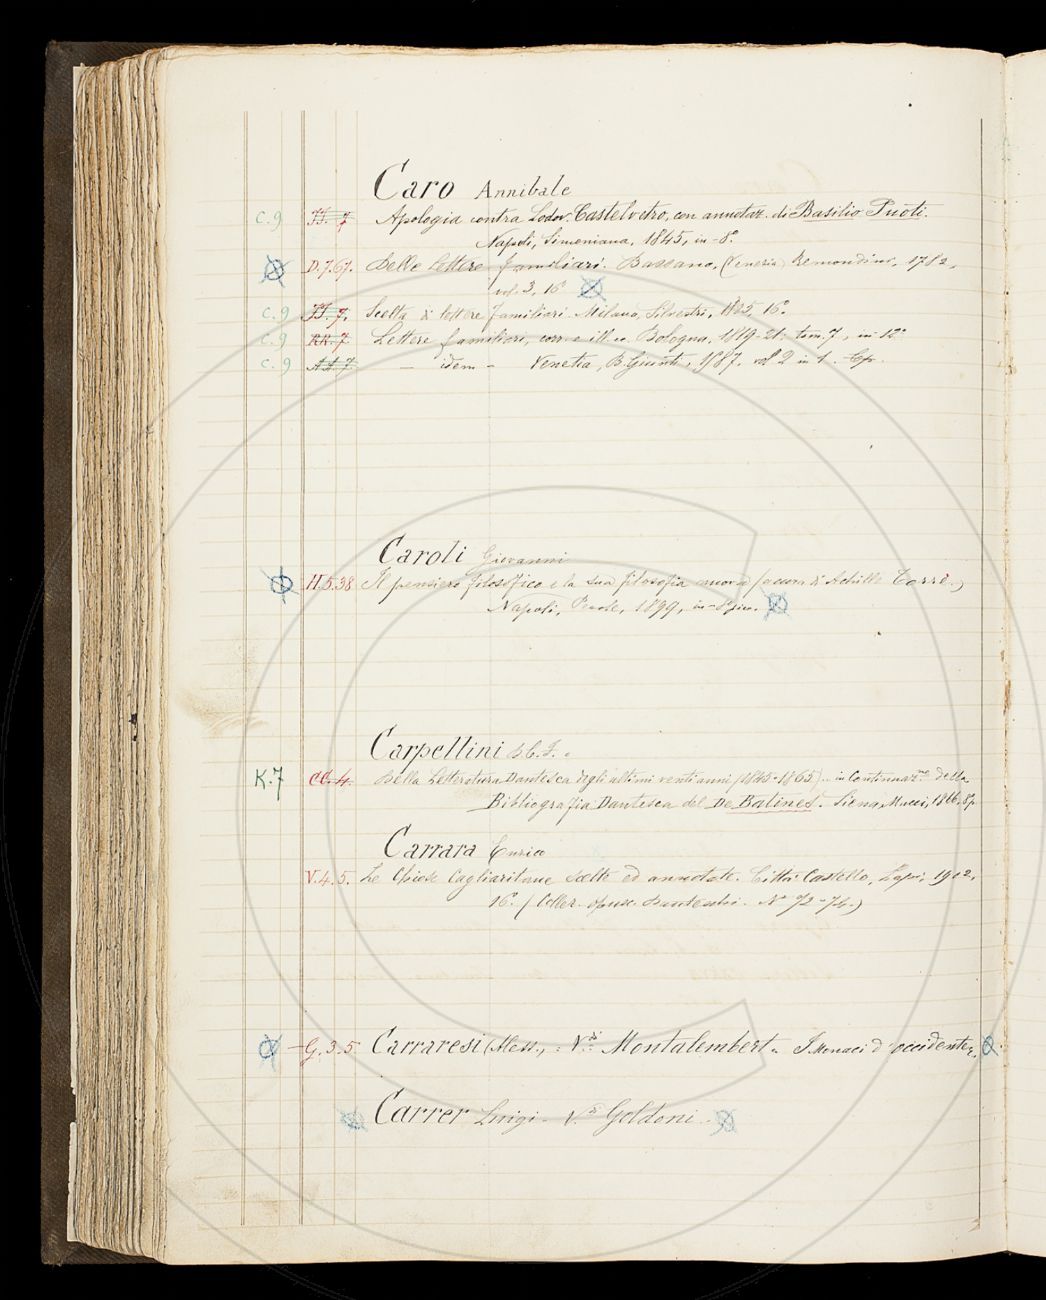 Caro Annibale
C. 9 Apologia contra Lodov. Castelvetro, con annotaz. di Basilio Puoti.
Napoli, Simoniana, 1845, in-8°.
D.7.67. Delle Lettere familiari. Bassano, (Venezia) Remondini, 1782,
vol. 3, 16°
C. 9 Scelta di lettere familiari. Milano, Silvestri, 1825, 16°.
C. 9 RR. 7 Lettere familiari, corr. e ill. Bologna, 1819-21. tom. 7, in-12°
C. 9 – idem – Venetia, B. Giunti, 1587. vol 2 in 1.
Caroli Giovanni
H.5.38 Il pensiero filosofico e la sua filosofia nuova Achille Torre.)
Napoli, 1899, in-8°
Carpellini C. F.
K.7 CC. 4. Della Letteratura Dantesca degli ultimi venti anni (1845-1865) in Continuaz.ne della
Bibliografia Dantesca del De Batines. Siena, Mucci, 1866, 8°
Carrara Enrico
V.4.5. Le Chiose Cagliaritane scelte ed annotate. Città Castello, Lapi, 1902,
16°. (Collez. opusc. Danteschi. N° 72-74.)
G.3.5 Carraresi (Aless.) = V.di Montalembert = I Monaci d'occidente.
Carrer Luigi – V.di Goldoni